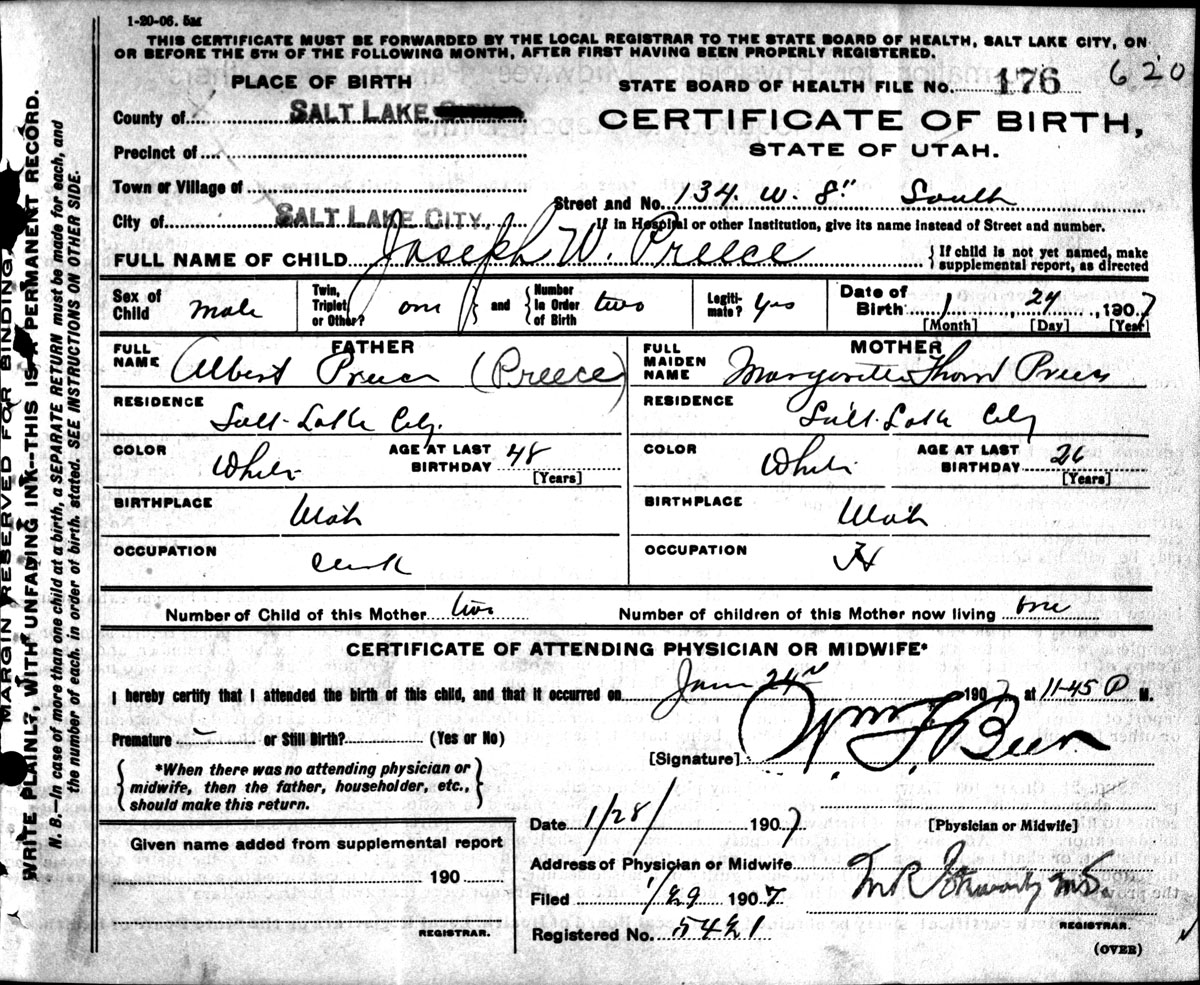 1-20-06. 5M
THIS CERTIFICATE MUST BE FORWARDED BY THE LOCAL REGISTRAR TO THE STATE BOARD OF HEALTH, SALT LAKE CITY, ON
OR BEFORE THE 5TH OF THE FOLLOWING MONTH, AFTER FIRST HAVING BEEN PROPERLY REGISTERED.
PLACE OF BIRTH
STATE BOARD OF HEALTH FILE NO. 176 620
County of SALT LAKE
CERTIFICATE OF BIRTH,
Precinct of
STATE OF UTAH.
Town or Village of
Street and No. 134. W. 8" South
City of SALT LAKE CITY.
If in Hospital or other Institution, give its name instead of Street and number.
FULL NAME OF CHILD Joseph W. Preece
{If child is not yet named, make
supplemental report, as directed
Sex of
Child male
Twin,
Triplet
or Other? one } and { Number
in Order
of Birth two
Legiti-
mate? yes
Date of
Birth 1 24 1907
[Month] [Day] [Year]
FATHER
FULL
NAME Albert Preece (Preece)
MOTHER
FULL
MAIDEN
NAME
RESIDENCE
Salt Lake City.
RESIDENCE
Salt Lake City
COLOR White
AGE AT LAST
BIRTHDAY 48
[Years]
COLOR White
AGE AT LAST
BIRTHDAY 26
[Years]
BIRTHPLACE
Utah
BIRTHPLACE
Utah
OCCUPATION
Clerk
OCCUPATION
Number of Child of this Mother two
Number of children of this Mother now living one
CERTIFICATE OF ATTENDING PHYSICIAN OR MIDWIFE*
I hereby certify that I attended the birth of this child, and that it occurred on Jan 24th 1907 at 11-45 P M.
Premature - or Still Birth? (Yes or No)
[Signature] Wm F Beer
{*When there was no attending physician or
midwife, then the father, householder, etc.,
should make this return.}
Date 1/28/ 1907
[Physician or Midwife]
Given name added from supplemental report
190
REGISTRAR.
Address of Physician or Midwife
Filed 1/29 1907.
M.D.
Registered No. 5421
REGISTRAR.
(OVER)
MARGIN RESERVED FOR BINDING.
WRITE PLAINLY, WITH UNFADING INK--THIS IS A PERMANENT RECORD.
N. B.—In case of more than one child at a birth, a SEPARATE RETURN must be made for each, and
the number of each, in order of birth, stated. SEE INSTRUCTIONS ON OTHER SIDE.